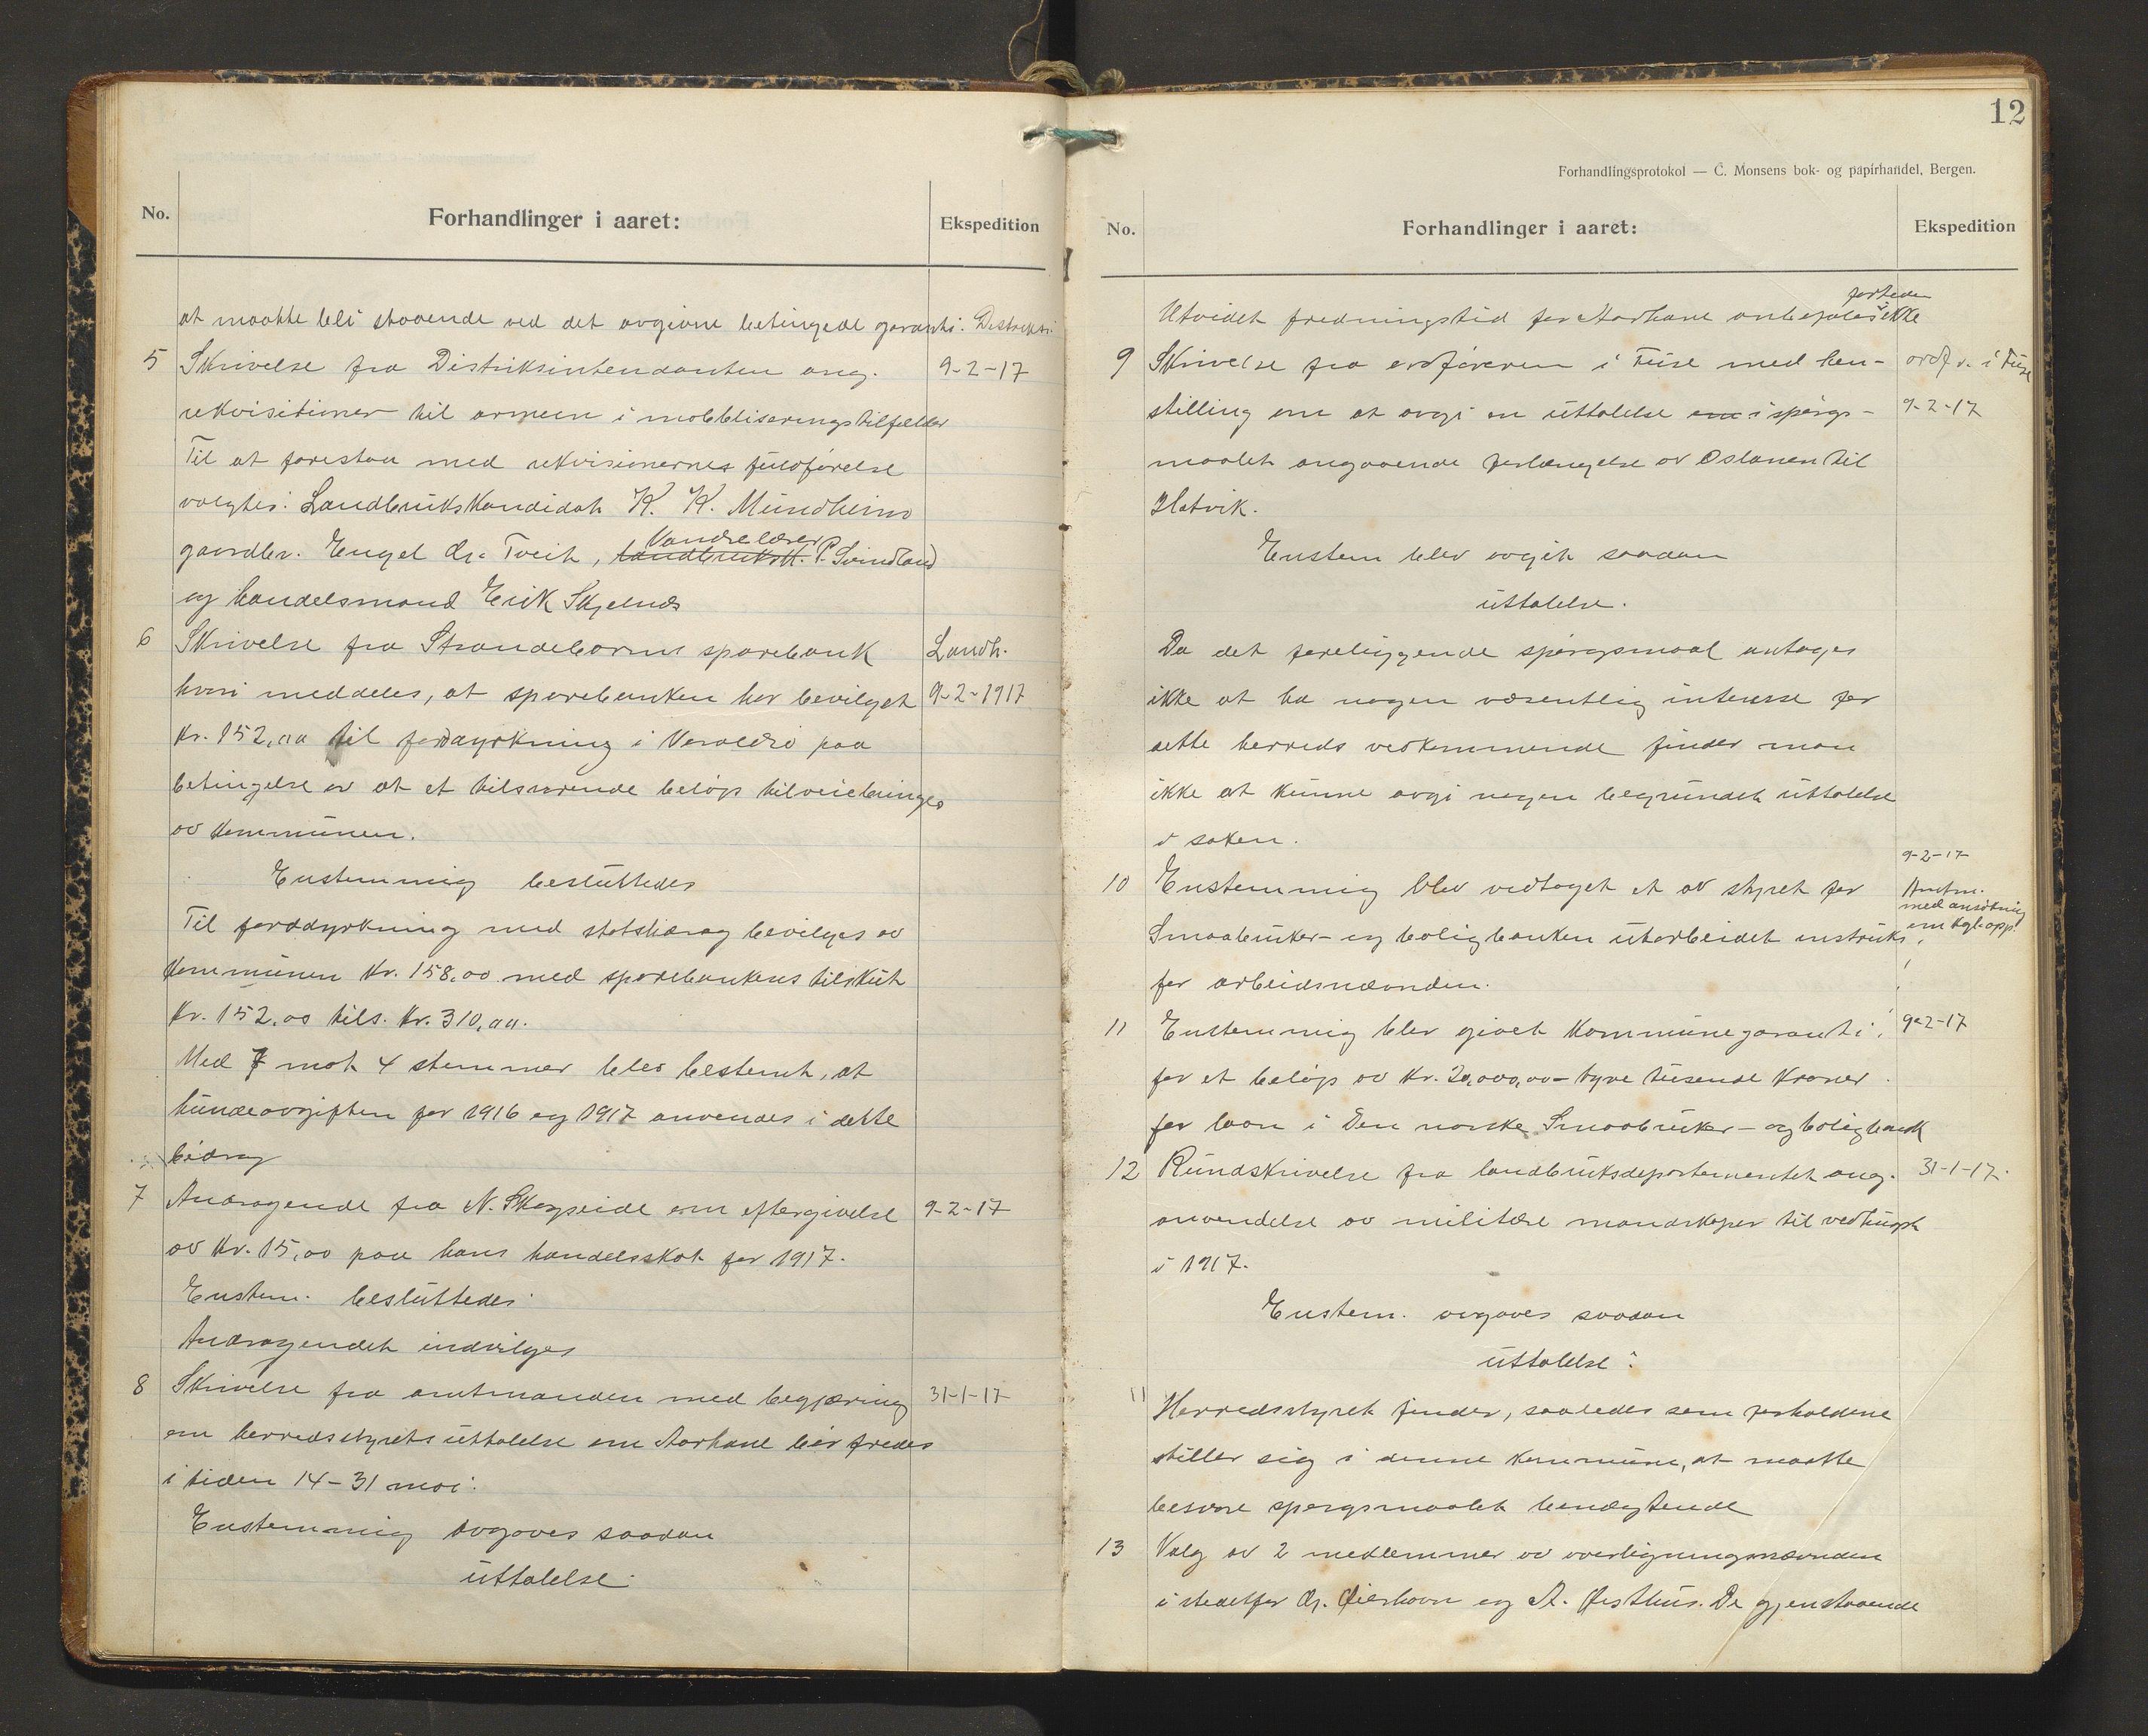 No.
Forhandlinger i aaret:
Ekspedition
at maatte bli staaende ved det avgivne betingede garanti. Distriksi
5 Skrivelse fra Distriksintendanten ang. 9-2-17
rekvisitioner til armeen i mobbliseringstilfælder
Til at forestaa med rekvisionernes fuldførelse
valgtes: Landbrukskandidat K. K. Mundheim
Vandrelærer
gaardbr. Engel Tveit, landbruksk. P. Svindland
og handelsmand Erik Skjelnes
6 Skrivelse fra Strandebarms sparebank Landh.
hvori meddeles, at sparebanken har bevilget 9-2-1917
Kr. 152,00 til jorddyrkning i Varaldsø paa
betingelse av at et tilsvarende beløp tilveiebringes
av kommunen.
Enstemmig besluttedes
Til jorddyrkning med statsbidrag bevilges av
kommunen kr. 158,00 med sparebankens tilskut
Kr. 152,00 tils. kr. 310,00.
Med 7 mot 4 stemmer blev bestemt, at
hundeavgiften for 1916 og 1917 anvendes i dette
bidrag
7 Andragende fra N. Skogseide om eftergivelse 9-2-17
av kr. 15,00 paa hans handelsskat for 1917.
Enstem. besluttedes:
Andragendet indvilges
8 Skrivelse fra amtmanden med begjæring 31-1-17
om herredsstyrets uttalelse om Aarhane bør fredes
i tiden 14-31 mai:
Enstemmig avgaves saadan
uttalelse:
12
Forhandlingsprotokol — C. Monsens bok- og papirhandel, Bergen.
No.
Forhandlinger i aaret:
Ekspedition
fortiden
Utvidet fredningstid for Aarhane anbefales ikke
9 Skrivelse fra ordføreren i Fuse med hen- ordf. i Fuse
stilling om at avgi en uttalelse om i spørgs- 9-2-17
maalet angaaende forlængelse av Osbanen til
Hatvik.
Enstem blev avgit saadan
uttalelse.
Da det foreliggende spørgsmaal antages
ikke at ha nogen væsentlig interesse for
dette herreds vedkommende finder man
ikke at kunne avgi nogen begrundet uttalelse
i saken.
9-2-17
10 Enstemmig blev vedtaget et av styret for Amtm.
med ansøkning
Smaabruker- og boligbanken utarbeidet instruks om kgl. app!
for arbeidsnævnden.
11 Enstemmig blev givet kommunegaranti 9-2-17
for et beløp av kr. 20,000,00 - tyve tusende kroner
for laan i Den norske Smaabruker- og boligbank
12 Rundskrivelse fra landbruksdepartementet ang. 31-1-17.
anvendelse av militære mandskaper til vedhugst
i 1917.
Enstem. avgaves saadan
uttalelse:
11 Herredsstyret finder, saaledes som forholdene
stiller sig i denne kommune, at maatte
besvare spørgsmaalet benægtende
13 Valg av 2 medlemmer av overligningsnævnden
i stedetfor Øierhavn og A. Østhus. De gjenstaaende